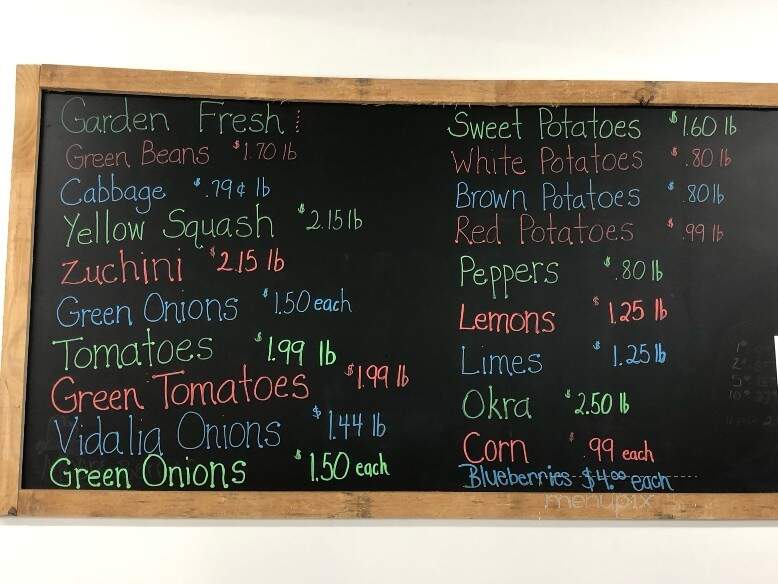 Garden Fresh:
Green Beans $1.70 lb
Cabbage $.79¢ lb
Yellow Squash $2.15 lb
Zuchini $2.15 lb
Green Onions $1.50 each
Tomatoes $1.99 lb
Green Tomatoes $1.99 lb
Vidalia Onions $1.44 lb
Green Onions $1.50 each
Sweet Potatoes $1.60 lb
White Potatoes $.80 lb
Brown Potatoes $.80 lb
Red Potatoes $.99 lb
Peppers $.80 lb
Lemons $1.25 lb
Limes $1.25 lb
Okra $2.50 lb
Corn $.99 each
Blueberries $4.00 each
menupix